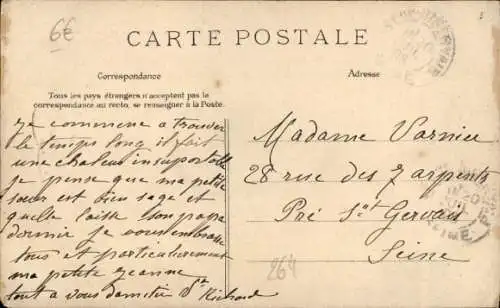 6€
CARTE POSTALE
Correspondance
Adresse
Tous les pays étrangers n'acceptent pas la
correspondance au recto, se renseigner à la Poste.
je commence a trouver
le temps long il fait
une chaleur insuportable
je pense que ma petite
sœur est bien sage et
quelle laisse son papa
dormir je vous embrasse
tous et particulierement
ma petite Jeanne
tout a vous Richard
Madame Varnier
28 rue des 7 arpents
Pré St Gervais
Seine
264